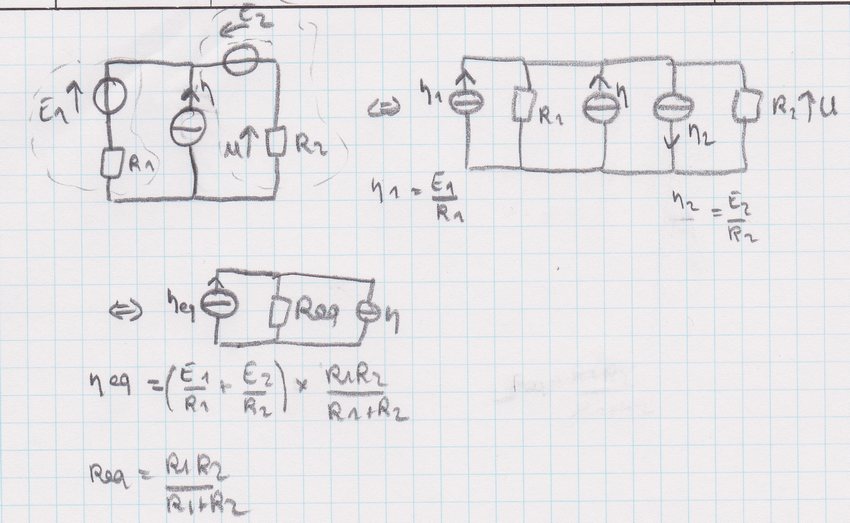 E2
E1
η
R1
u
R2
⇔
η1
R1
η
η2
R2
u
η1 = E1/R1
η2 = E2/R2
⇔
ηeq
Req
η
ηeq = (E1/R1 + E2/R2) × R1R2/R1+R2
Req = R1R2/R1+R2